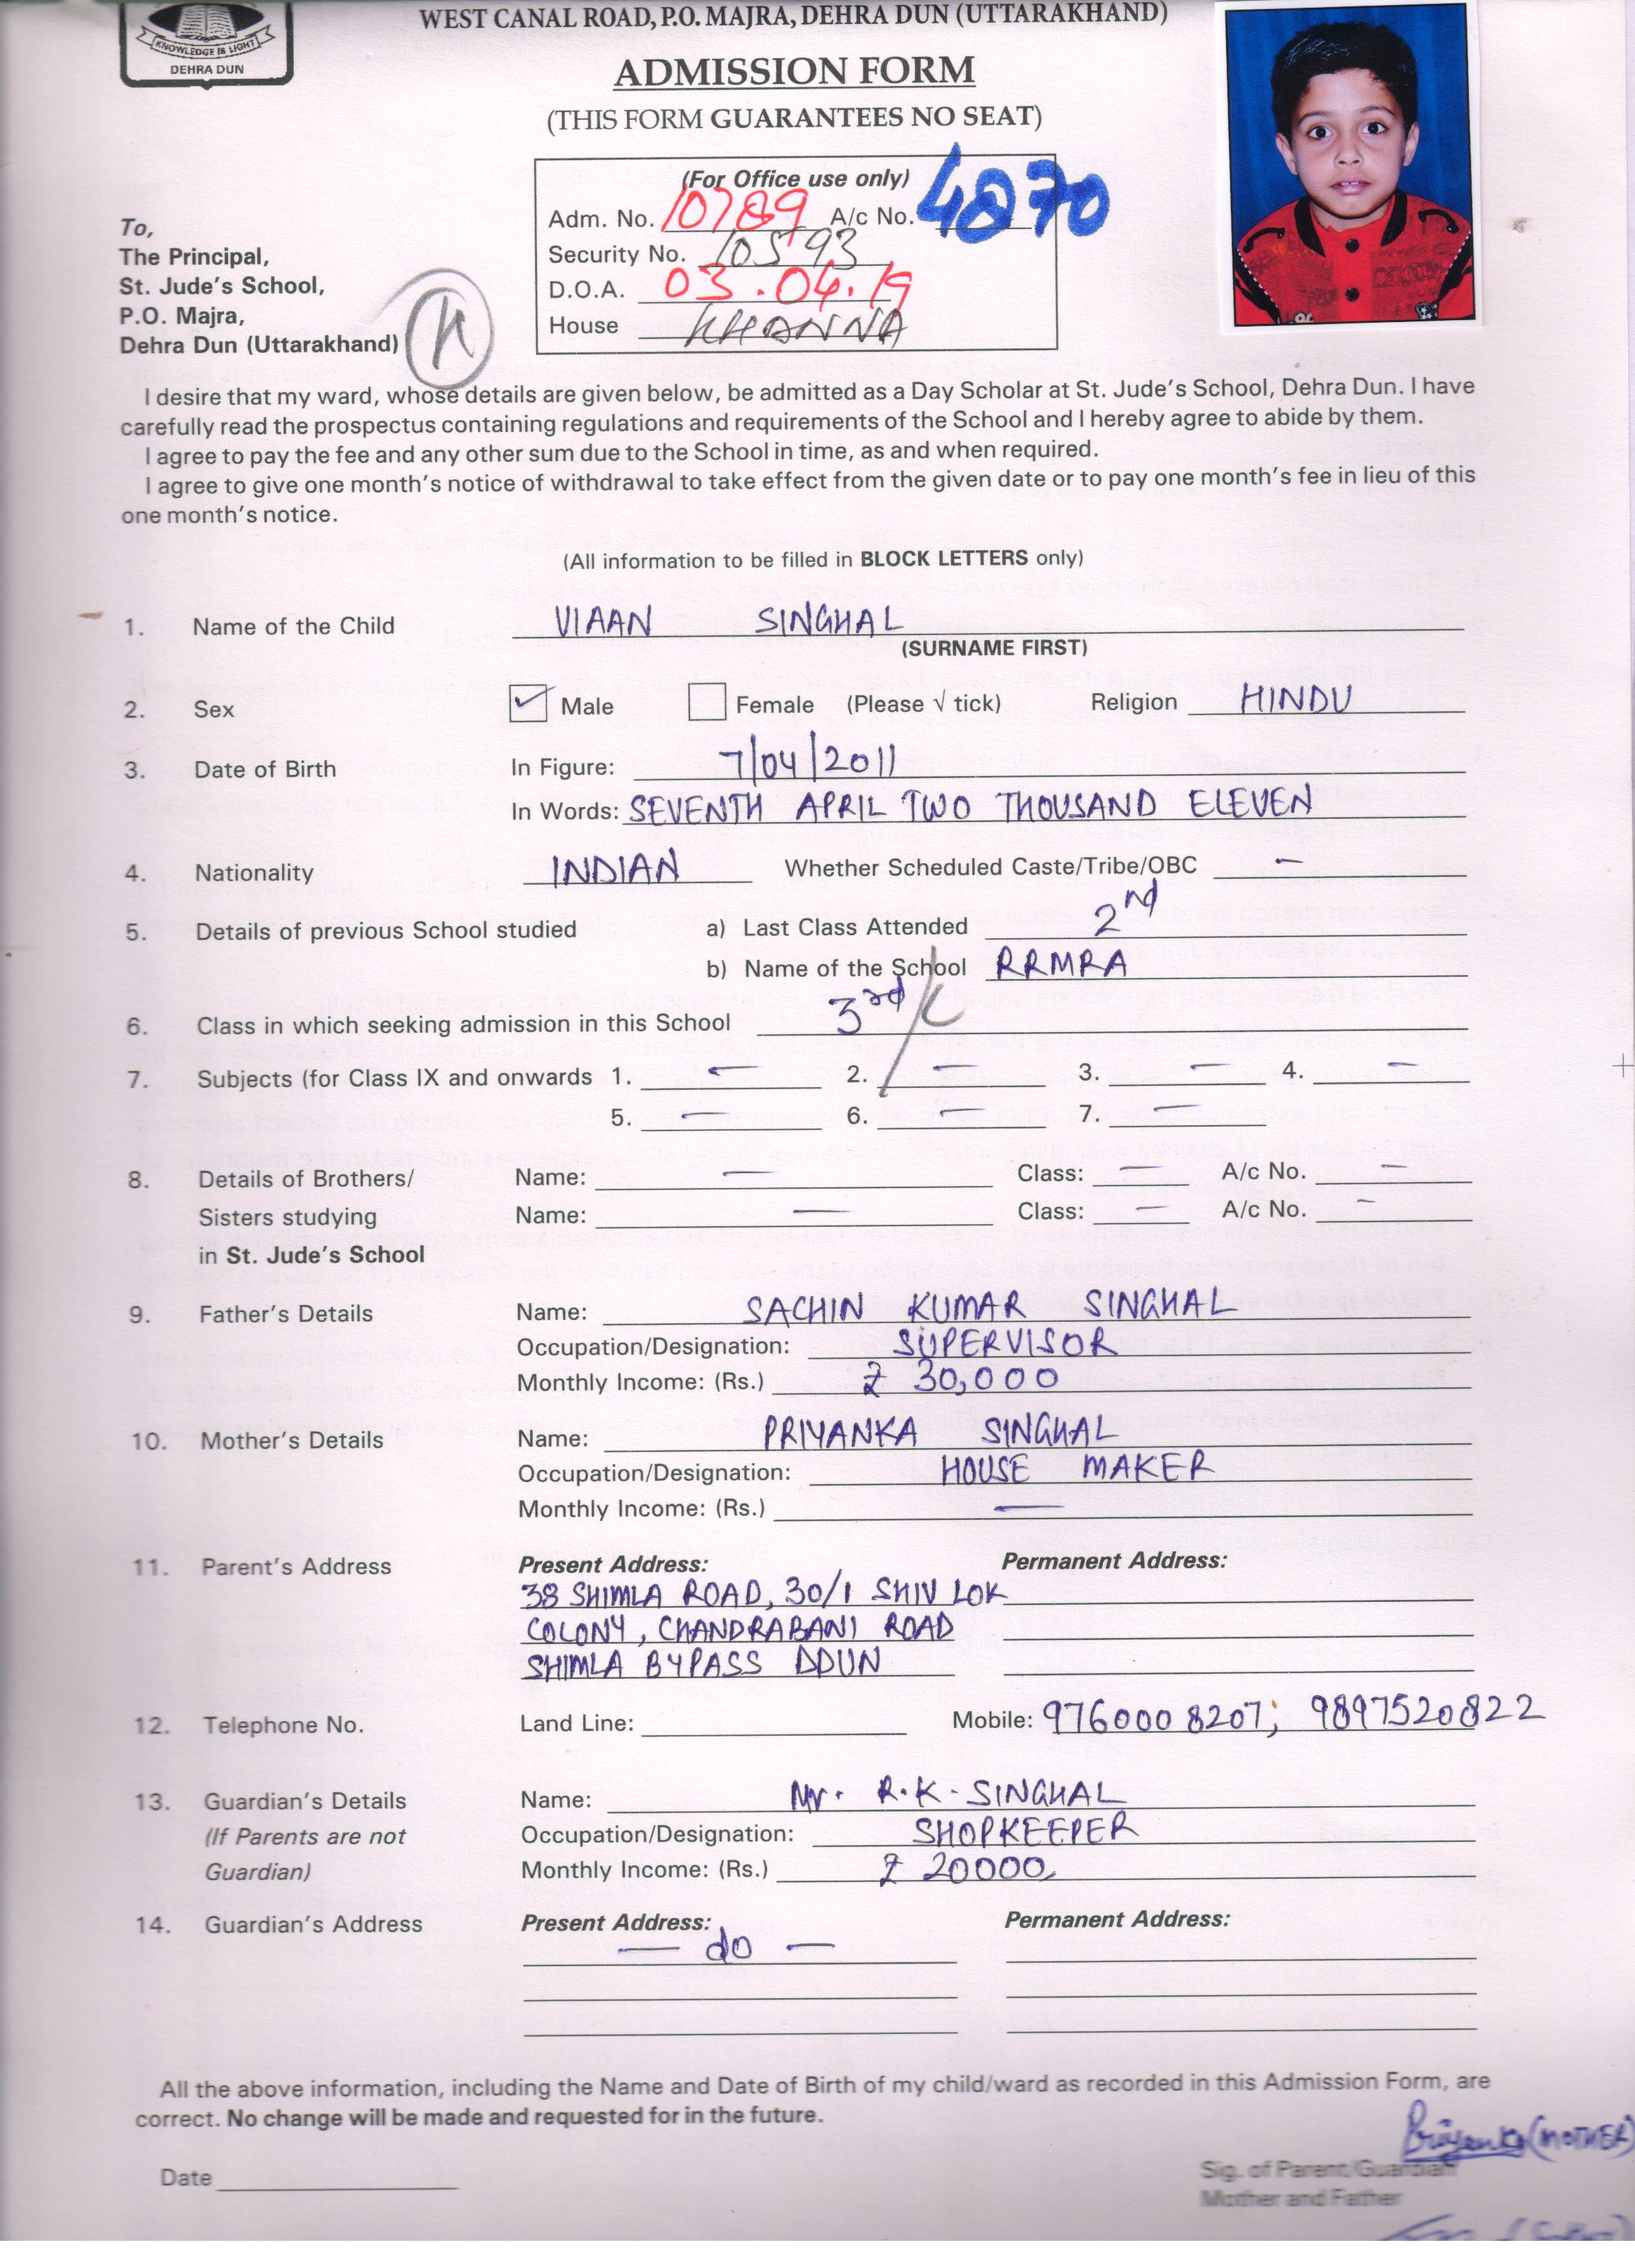 WEST CANAL ROAD, P.O. MAJRA, DEHRA DUN (UTTARAKHAND)
KNOWLEDGE IS LIGHT
DEHRA DUN
ADMISSION FORM
(THIS FORM GUARANTEES NO SEAT)
(For Office use only)
Adm. No. 10789 A/c No. 4870
Security No. 10593
D.O.A. 03.04.19
House KHANNA
To,
The Principal,
St. Jude's School,
P.O. Majra,
Dehra Dun (Uttarakhand)
I desire that my ward, whose details are given below, be admitted as a Day Scholar at St. Jude's School, Dehra Dun. I have
carefully read the prospectus containing regulations and requirements of the School and I hereby agree to abide by them.
I agree to pay the fee and any other sum due to the School in time, as and when required.
I agree to give one month's notice of withdrawal to take effect from the given date or to pay one month's fee in lieu of this
one month's notice.
(All information to be filled in BLOCK LETTERS only)
1. Name of the Child VIAAN SINGHAL
(SURNAME FIRST)
2. Sex ✓ Male Female (Please √ tick) Religion HINDU
3. Date of Birth In Figure: 7/04/2011
In Words: SEVENTH APRIL TWO THOUSAND ELEVEN
4. Nationality INDIAN Whether Scheduled Caste/Tribe/OBC —
5. Details of previous School studied a) Last Class Attended 2nd
b) Name of the School RRMRA
6. Class in which seeking admission in this School 3rd/C
7. Subjects (for Class IX and onwards 1. — 2. — 3. — 4. —
5. — 6. — 7. —
8. Details of Brothers/ Name: — Class: — A/c No. —
Sisters studying Name: — Class: — A/c No. —
in St. Jude's School
9. Father's Details Name: SACHIN KUMAR SINGHAL
Occupation/Designation: SUPERVISOR
Monthly Income: (Rs.) ₹ 30,000
10. Mother's Details Name: PRIYANKA SINGHAL
Occupation/Designation: HOUSE MAKER
Monthly Income: (Rs.) —
11. Parent's Address Present Address: Permanent Address:
38 SHIMLA ROAD, 30/1 SHIV LOK
COLONY, CHANDRABANI ROAD
SHIMLA BYPASS DDUN
12. Telephone No. Land Line: Mobile: 9760008207; 9897520822
13. Guardian's Details Name: Mr. R.K. SINGHAL
(If Parents are not Occupation/Designation: SHOPKEEPER
Guardian) Monthly Income: (Rs.) ₹ 20000
14. Guardian's Address Present Address: Permanent Address:
— do —
All the above information, including the Name and Date of Birth of my child/ward as recorded in this Admission Form, are
correct. No change will be made and requested for in the future.
Priyanka (MOTHER)
Date Sig. of Parent/Guardian
Mother and Father